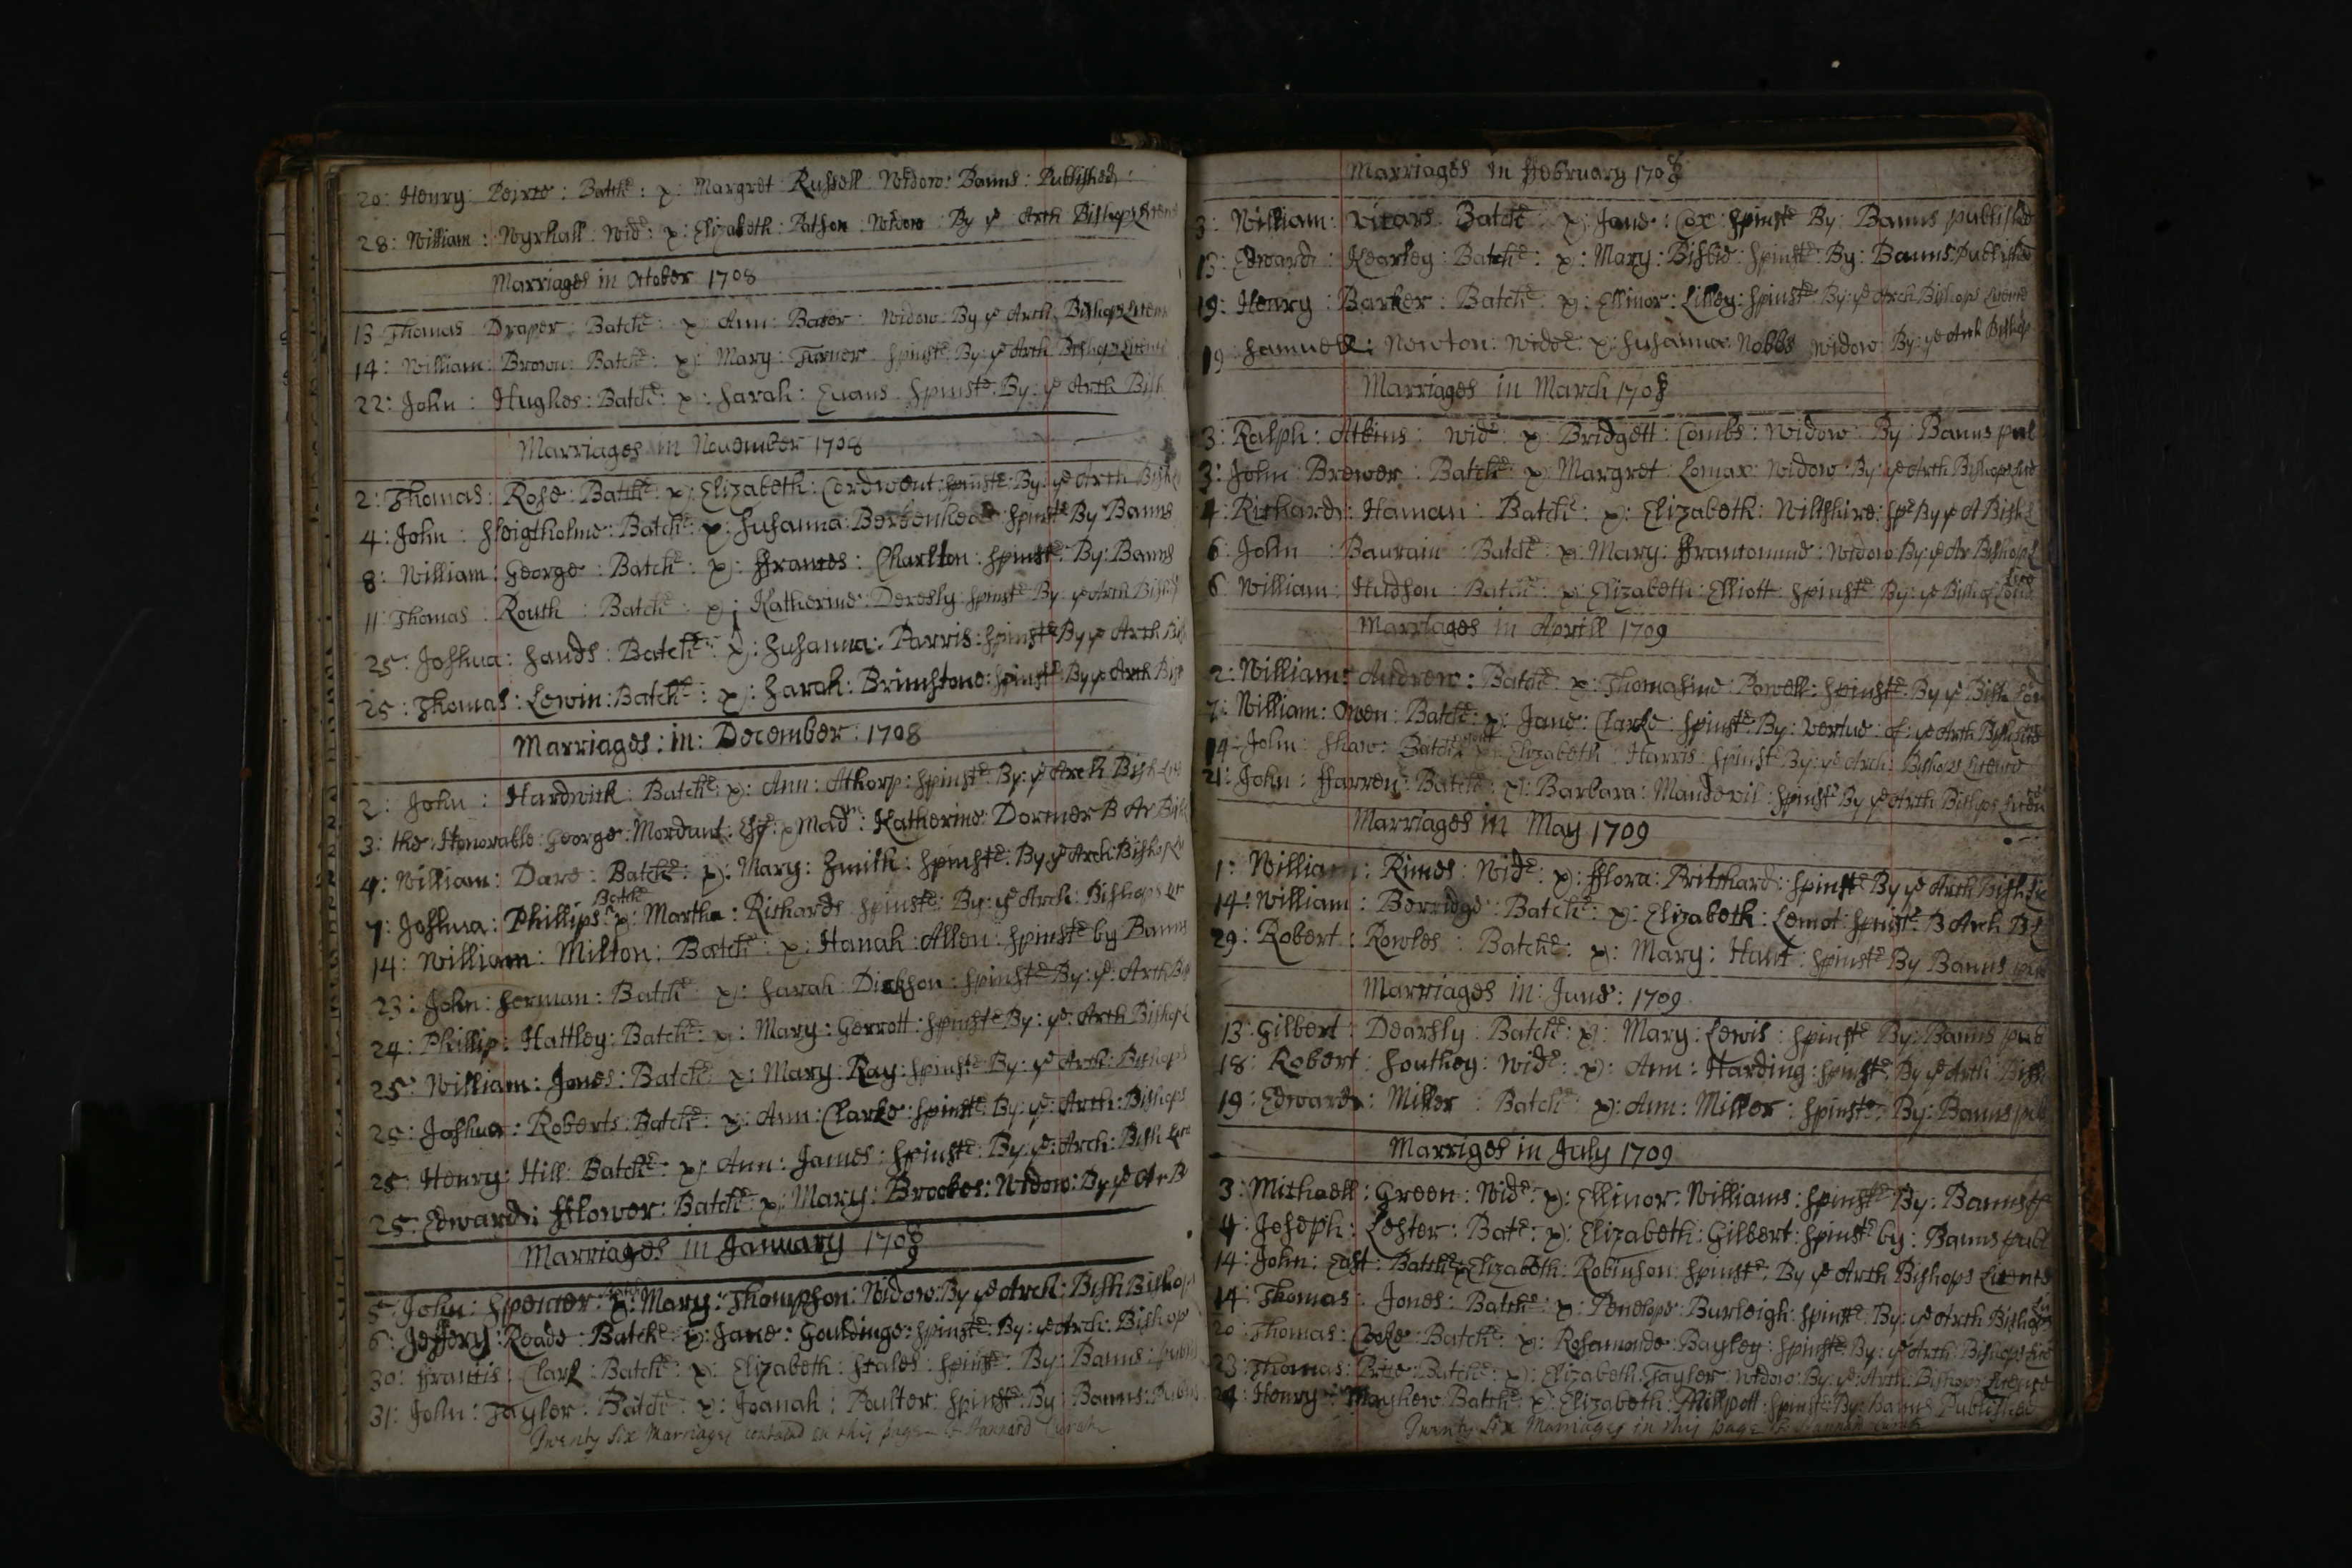 20: Henry: Peirce: Batchᵉ: x: Margret Russell Widow: Banns: Published:
28: William: Wyxhall Widᵉ: x: Elizabeth: Patson Widow By yᵉ Arch Bishops
Marriages in October 1708
13 Thomas Draper: Batchᵉ: x: Ann: Bater: Widow: By yᵉ Arch: Bishops
14: William: Brown: Batchᵉ: x: Mary: Turner Spinstᵉ: By: yᵉ Arch Bishops
22: John: Hughes: Batchᵉ: x: Sarah: Evans Spinstᵉ: By: yᵉ Arch Bish
Marriages in November 1708
2: Thomas: Rose: Batchᵉ: x: Elizabeth: Cordwent: Spinstᵉ: By: yᵉ Arch Bish
4: John: Batchᵉ: x: Susanna: Spinstᵉ By Banns
8: William: George: Batchᵉ: x: ffrances: Charlton: Spinstᵉ: By: Banns
11: Thomas: Routh: Batchᵉ: x: Katherine: Deresly Spinstᵉ By: yᵉ Arch Bish
25: Joshua: Sands: Batchᵉ: x: Susanna: Parris: Spinstᵉ By yᵉ Arch Bish
25: Thomas: Lewin: Batchᵉ: x: Sarah: Brimstone: Spinstᵉ: By yᵉ Arch Bish
Marriages: in: December: 1708
2: John: Hardwick Batchᵉ: x: Ann: Athorp: Spinstᵉ: By: yᵉ Arch Bish
3: the Honorable: George: Mordant: Esq: x Madᵐ: Katherine: Dormer B Ar Bish
4: William: Dare: Batchᵉ: x: Mary: Smith: Spinstᵉ: By yᵉ Arch: Bishops
Batchᵉ
7: Joshua: Phillips x: Martha: Richards Spinstᵉ: By: yᵉ Arch: Bishops
14: William: Milton: Batchᵉ: x: Hanah: Allen: Spinstᵉ by Banns
23: John: Serman: Batchᵉ x: Sarah: Dickson: Spinstᵉ By: yᵉ: Arch Bish
24: Phillip: Hattley: Batchᵉ: x: Mary: Gerrott: Spinstᵉ By: yᵉ: Arch Bishops
25: William: Jones: Batchᵉ: x: Mary: Ray: Spinstᵉ By: yᵉ Arch: Bishops
25: Joshua: Roberts: Batchᵉ: x: Ann: Clarke: Spinstᵉ: By: yᵉ: Arch: Bishops
25: Henry: Hill: Batchᵉ: x: Ann: James: Spinstᵉ: By: yᵉ: Arch: Bish
25: Edward: fflower: Batchᵉ: x: Mary: Brookes: Widow: By yᵉ Ar B
Marriages in January 1708/9
5: John: Spencer: x: Mary: Thompson: Widow: By yᵉ Arch: Bish Bishop
6: Jeffery: Reade: Batchᵉ: x: Jane: Gouldinge: Spinstᵉ: By: yᵉ Arch: Bishop
30: ffrancis: Clark: Batchᵉ: x: Elizabeth: Stales: Spinstᵉ: By: Banns: publis
31: John: Tayler: Batchᵉ: x: Joanah: Poulter Spinstᵉ: By: Banns: Publis
Twenty Six Marriages containd in this page Curate
Marriages in ffebruary 1708/9
3: William: Vicars Batchᵉ: x: Jane: Cox: Spinstᵉ By: Banns published
13: Edward: Kearley: Batchᵉ: x: Mary: Bisbie: Spinstᵉ: By: Banns: Published
19: Henry: Barker: Batchᵉ: x: Ellinor: Lilley: Spinstᵉ By: yᵉ Arch Bishops Licence
19: Samuell: Newton: Widᵉ: x: Susanna: Nobbs Widow: By: yᵉ Arch Bishop
Marriages in March 1708/9
3: Ralph: Atkins: Widᵉ: x: Bridgett: Combs: Widow: By: Banns pub
3: John: Brewer: Batchᵉ: x: Margret Lomax: Widow: By: yᵉ Arch Bishops
4: Richard: Haman: Batchᵉ: x: Elizabeth: Wiltshire: Spᵉ By yᵉ A Bish
6: John: Baurain: Batchᵉ: x: Mary: Widow: By: yᵉ Ar Bishops
6: William: Hudson: Batchᵉ: x: Elizabeth: Elliott: Spinstᵉ: By: yᵉ Bish of Lond
Marriages in Aprill 1709
2: William: Andrew: Batchᵉ: x: Thomasine: Powell: Spinstᵉ: By yᵉ Bish Lon
7: William: Owen: Batchᵉ: x: Jane: Clarke: Spinstᵉ: By: vertue: of: yᵉ Arch Bish
14: John: Shaw: Batchᵉ x: Elizabeth: Harris: Spinstᵉ By: yᵉ Arch: Bishops Licence
21: John: ffarren: Batchᵉ: x: Barbara: Mandevil: Spinstᵉ By yᵉ Arch Bishops
Marriages in May 1709
1: William: Rimes: Widᵉ: x: fflora: Pritchard: Spinstᵉ By yᵉ Arch Bish
14: William: Berridge: Batchᵉ: x: Elizabeth: Lemot: Spinstᵉ: B Arch B
29: Robert: Rowles: Batchᵉ: x: Mary: Hant: Spinstᵉ By Banns
Marriages in: June: 1709
13: Gilbert: Dearsly: Batchᵉ: x: Mary: Lewis: Spinstᵉ By: Banns pub
18: Robert: Southey: Widᵉ: x: Ann: Harding: Spinstᵉ: By yᵉ Arch Bish
19: Edward: Miller: Batchᵉ: x: Ann: Miller: Spinstᵉ: By: Banns pub
Marriges in July 1709
3: Michaell: Green: Widᵉ: x: Ellinor: Williams: Spinstᵉ By: Banns
4: Joseph: Lester: Batᵉ: x: Elizabeth: Gilbert: Spinstᵉ by: Banns pub
14: John: East: Batchᵉ x Elizabeth: Robinson: Spinstᵉ: By yᵉ Arch Bishops Licence
14: Thomas: Jones: Batchᵉ: x: Penelope: Burleigh: Spinstᵉ: By: yᵉ Arch Bishops
20: Thomas: Cocke: Batchᵉ: x: Rosamonde: Bayley: Spinstᵉ By: yᵉ Arch: Bishops
23: Thomas: Price: Batchᵉ: x: Elizabeth: Tayler: Widow: By: yᵉ: Arch: Bishops Licence
24: Henry: Mayhew: Batchᵉ: x: Elizabeth: Phillpott: Spinstᵉ: By: Banns Published
Twenty Six Marriages in this page Curate